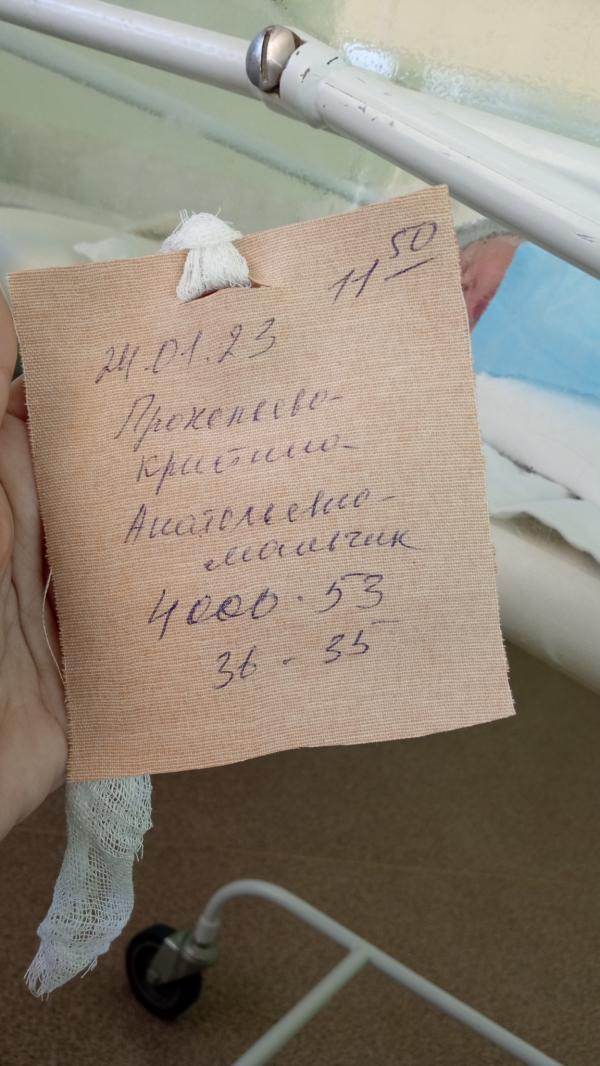 11 50
24.01.23
Прокопьева
Кристина
Анатольевна
мальчик
4000 - 53
36 - 35